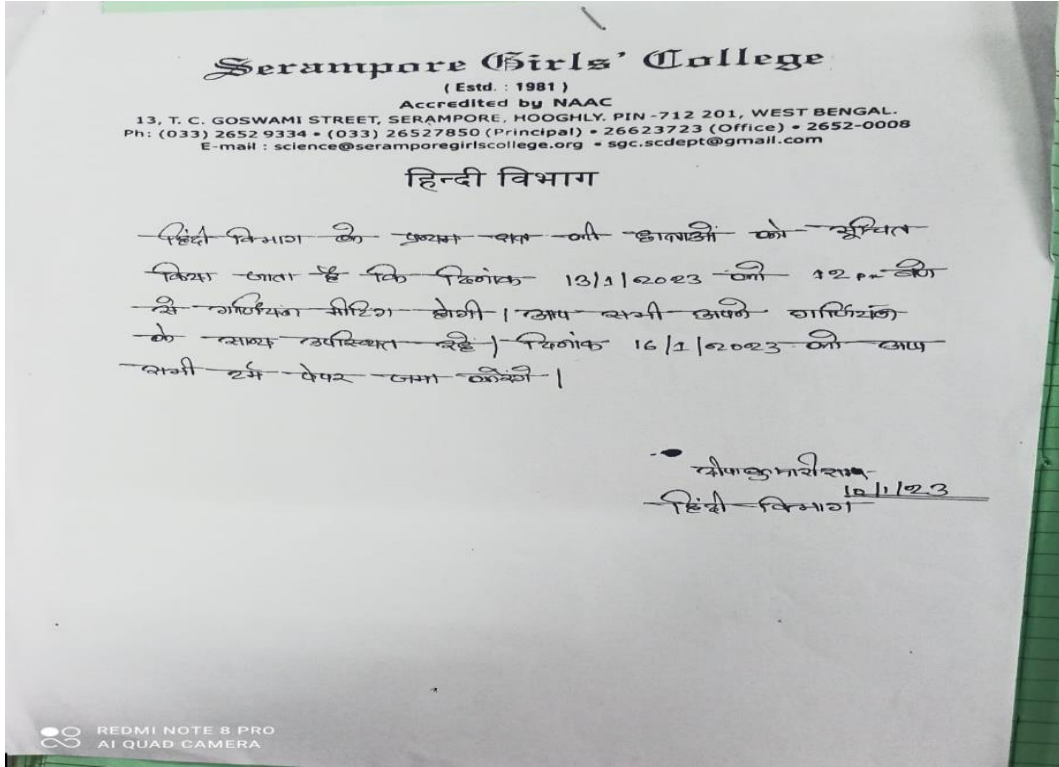 Serampore Girls' College
( Estd. : 1981 )
Accredited by NAAC
13, T. C. GOSWAMI STREET, SERAMPORE, HOOGHLY. PIN -712 201, WEST BENGAL.
Ph: (033) 2652 9334 • (033) 26527850 (Principal) • 26623723 (Office) • 2652-0008
E-mail : science@seramporegirlscollege.org • sgc.scdept@gmail.com
हिन्दी विभाग
हिंदी विभाग के प्रथम सत्र की छात्राओं को सूचित
किया जाता है कि दिनांक 13/1/2023 को 12 pm बजे
से गार्जियन मीटिंग होगी। आप सभी अपने गार्जियन
के साथ उपस्थित रहें। दिनांक 16/1/2023 को आप
सभी टर्म पेपर जमा करेंगे।
10/1/23
हिंदी विभाग
REDMI NOTE 8 PRO
AI QUAD CAMERA